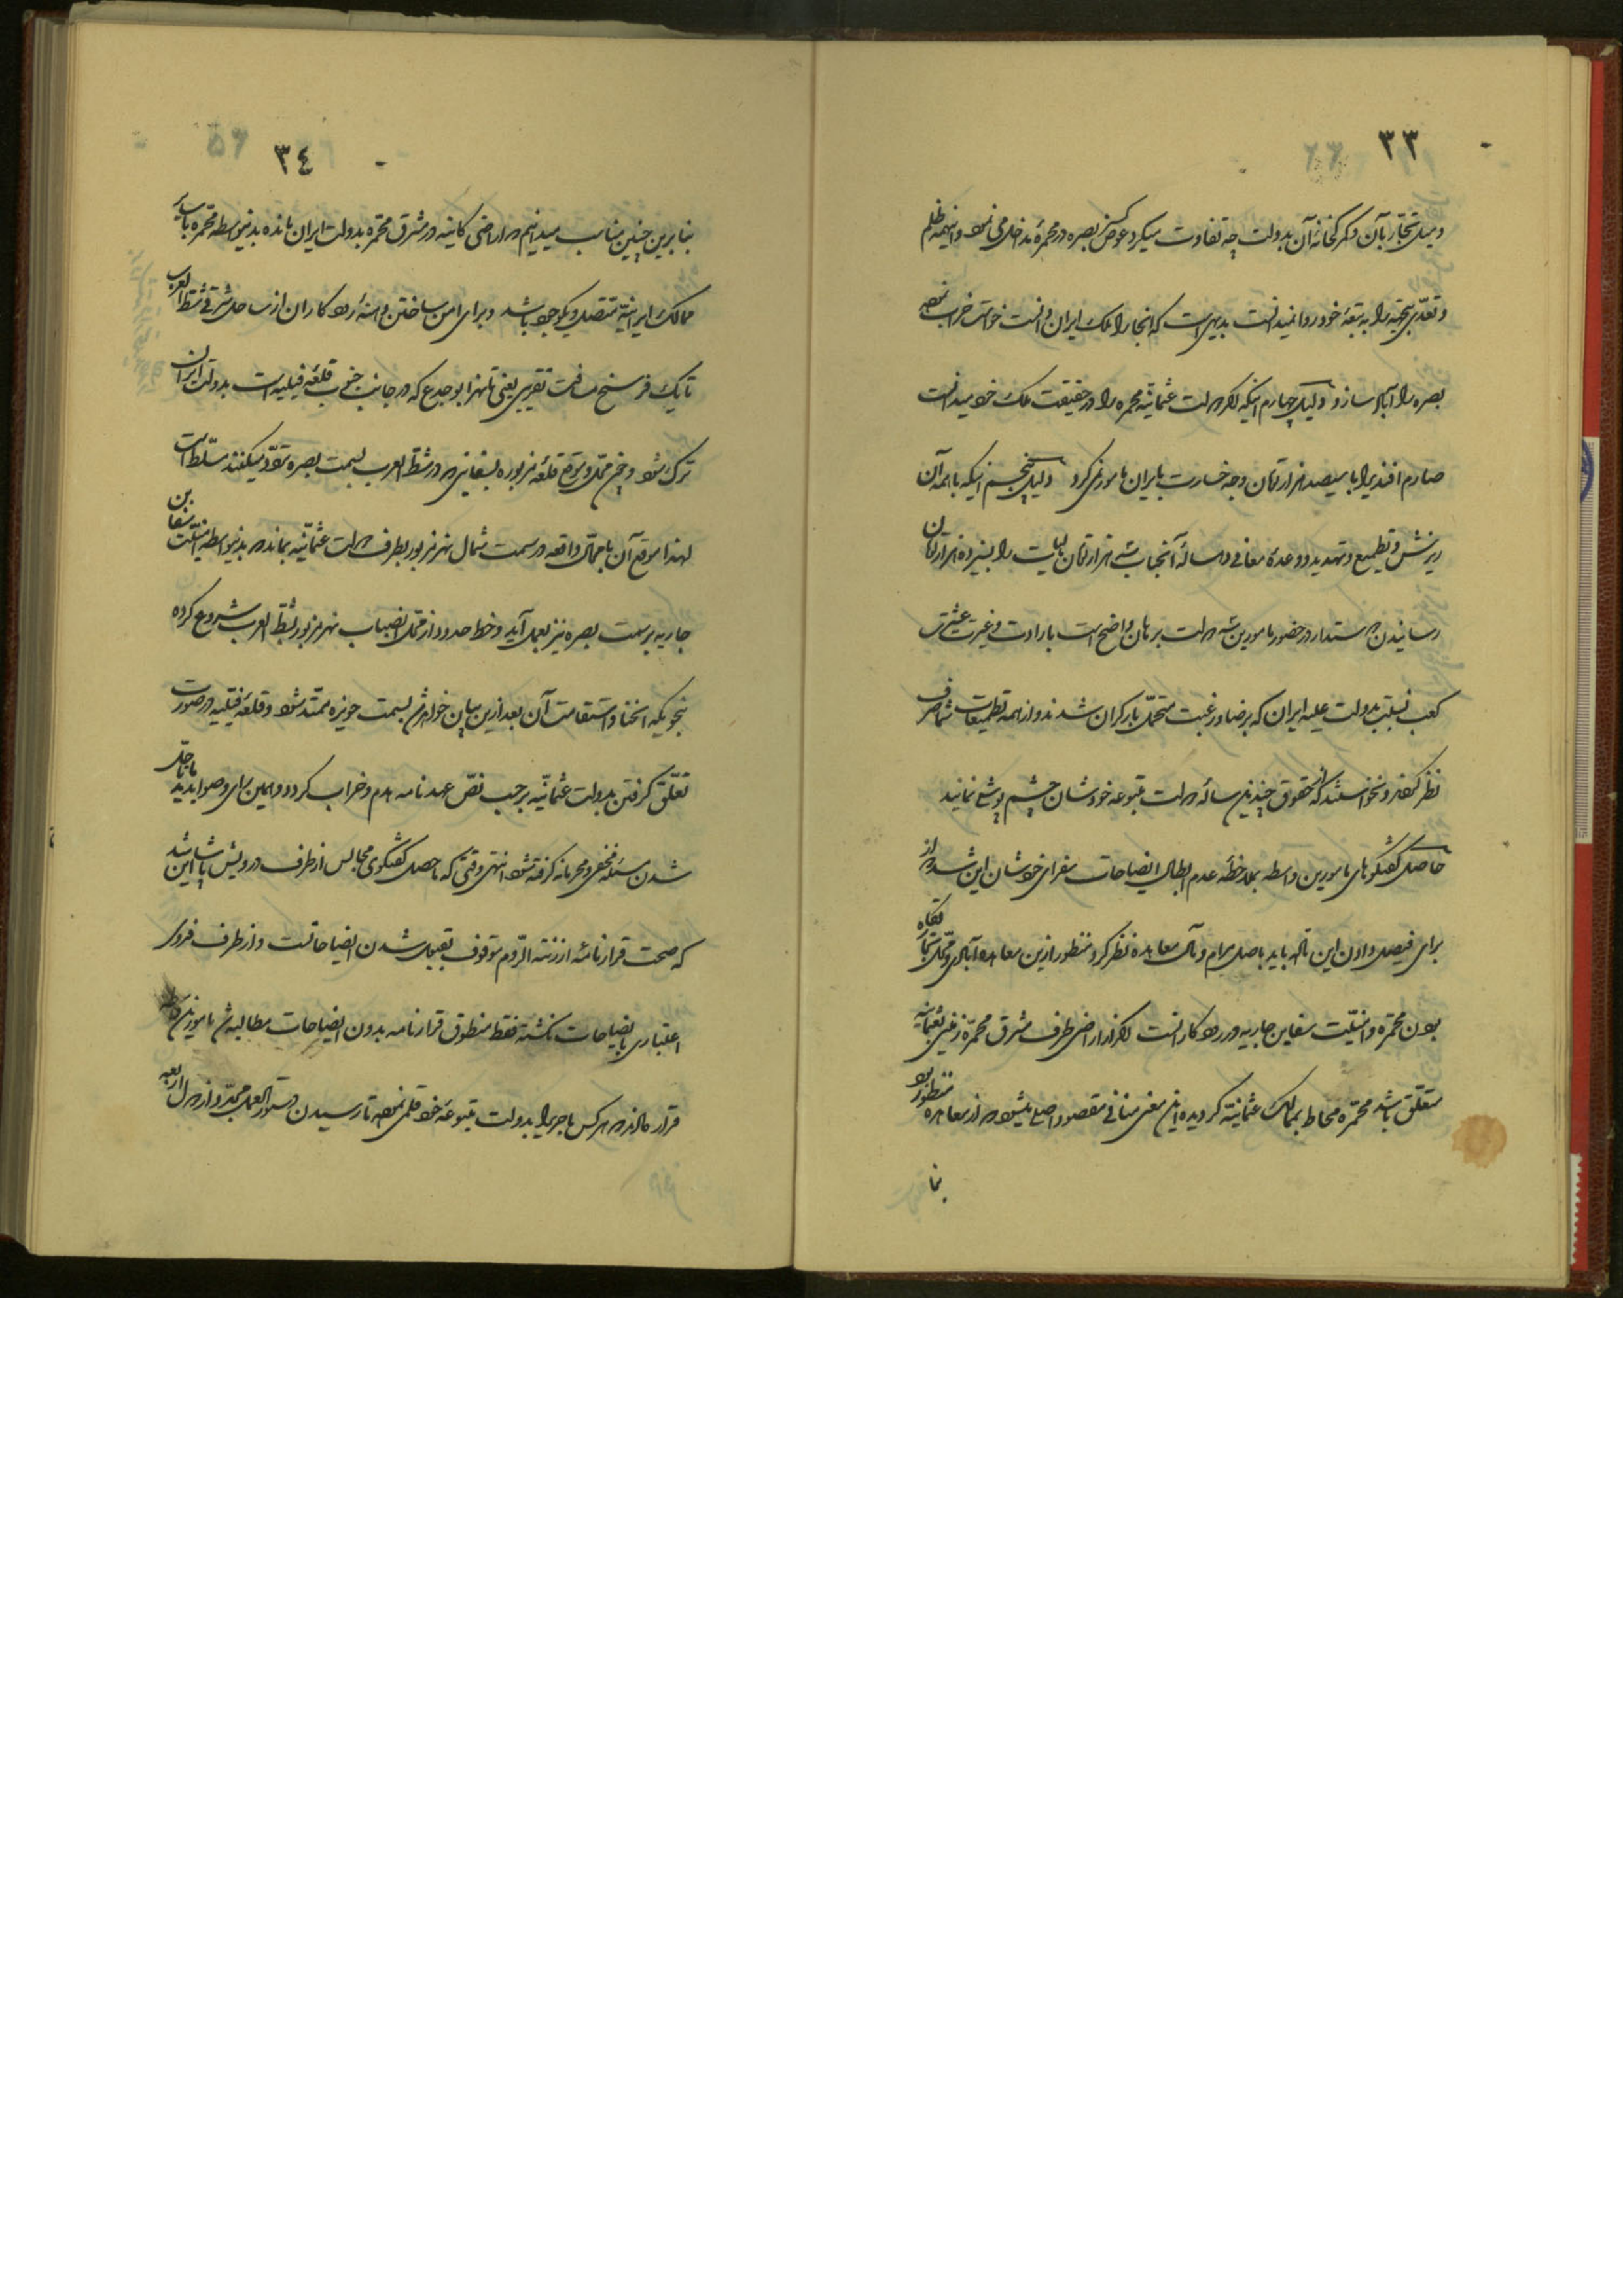 ۳۳
و میل تجار بآن و گمرکخانه آن بدولت چه تفاوت میکرد عوض بصره در محمره مداخل می نمود و اینهمه ظلم
و تعدی بتبعه خود روا نمیدانست بدیهی است که آنجا را ملک ایران دانست خواست خراب نموده
بصره را آباد سازد دلیل چهارم اینکه اگر دولت عثمانیه محمره را در حقیقت ملک خود میدانست
صارم افندی را با سیصد هزار تومان وجه خسارت بایران مامور نمی کرد دلیل پنجم اینکه با همه آن
ریزش و تطمیع و تهدید و وعده معافی ده ساله آنجناب سه هزار تومان مالیات را بسیزده هزار تومان
رسانیدن و سند دادن در حضور مامورین سه دولت برهان واضح است بارادت و غیرت عشیرت
کعب نسبت بدولت علیه ایران که برضا و رغبت متحمل بار گران شدند و از همه تطمیعات شما صرف
نظر کردند و نخواستند که حقوق چندین ساله دولت متبوعه خودشان چشم پوشی نمایند
حاصل گفتگوهای مامورین واسطه بملاحظه عدم ابطال ایضاحات سفرای خودشان این شد که از
برای فیصل دادن این تا اله باید باصل مرام و مآل معاهده نظر کرد منظور ازین معاهده آبادی و محل تجارتگاه
بودن محمره و امنیت سفاین جاریه در رود کارانست اگر از اراضی طرف مشرق محمره زمینی بعثمانیه
متعلق باشد محمره محاط بممالک عثمانیه گردیده این معنی منافی مقصود اصلی میشود که از معاهده منظور بود
بنا
۳٤
بنابرین چنین مناسب میدانیم که اراضی کاینه در مشرق محمره بدولت ایران مانده بدینواسطه محمره با سایر
ممالک ایرانیه متصل و یکوجود باشد و برای امن ساختن دهنه رود کاران از ساحل شرقی شط العرب
تا یک فرسخ مسافت تقریبی یعنی تا نهر ابو جدع که در جانب جنوب قلعه فیلیه است بدولت ایران
ترک شود و چون محل و موقع قلعه مزبوره بسفاینی که در شط العرب بسمت بصره تردد میکنند مسلط است
لهذا موقع آن با محال واقعه در سمت شمال نهر مزبور بطرف دولت عثمانیه بماند که بدینواسطه امنیت سفاین
جاریه بر سمت بصره نیز بعمل آید و خط حدود از محل انصباب نهر مزبور بشط العرب شروع کرده
بنحویکه انحنا و استقامت آن بعد ازین بیان خواهد شد بسمت حویزه ممتد شود و قلعه فیلیه در صورت
تعلق گرفتن بدولت عثمانیه برحسب نص عهدنامه هدم و خراب گردد و همین رای و صوابدید ما تا حل
شدن مسئله مخفی و محرمانه گرفته شود انتهی وقتی که ما حصل گفتگوی مجالس از طرف درویش پاشا این شد
که صحت قرارنامه ارزنة الروم موقوف بقبول شدن ایضاحاتست و از طرف فدوی
اعتباری بایضاحات نگشته فقط منطوق قرارنامه بدون ایضاحات مطالبه شد مامورین واسطه
قرار دادند که هر کس ماجری را بدولت متبوعه خود قلمی نموده تا رسیدن دستورالعمل مجدد از دول اربعه